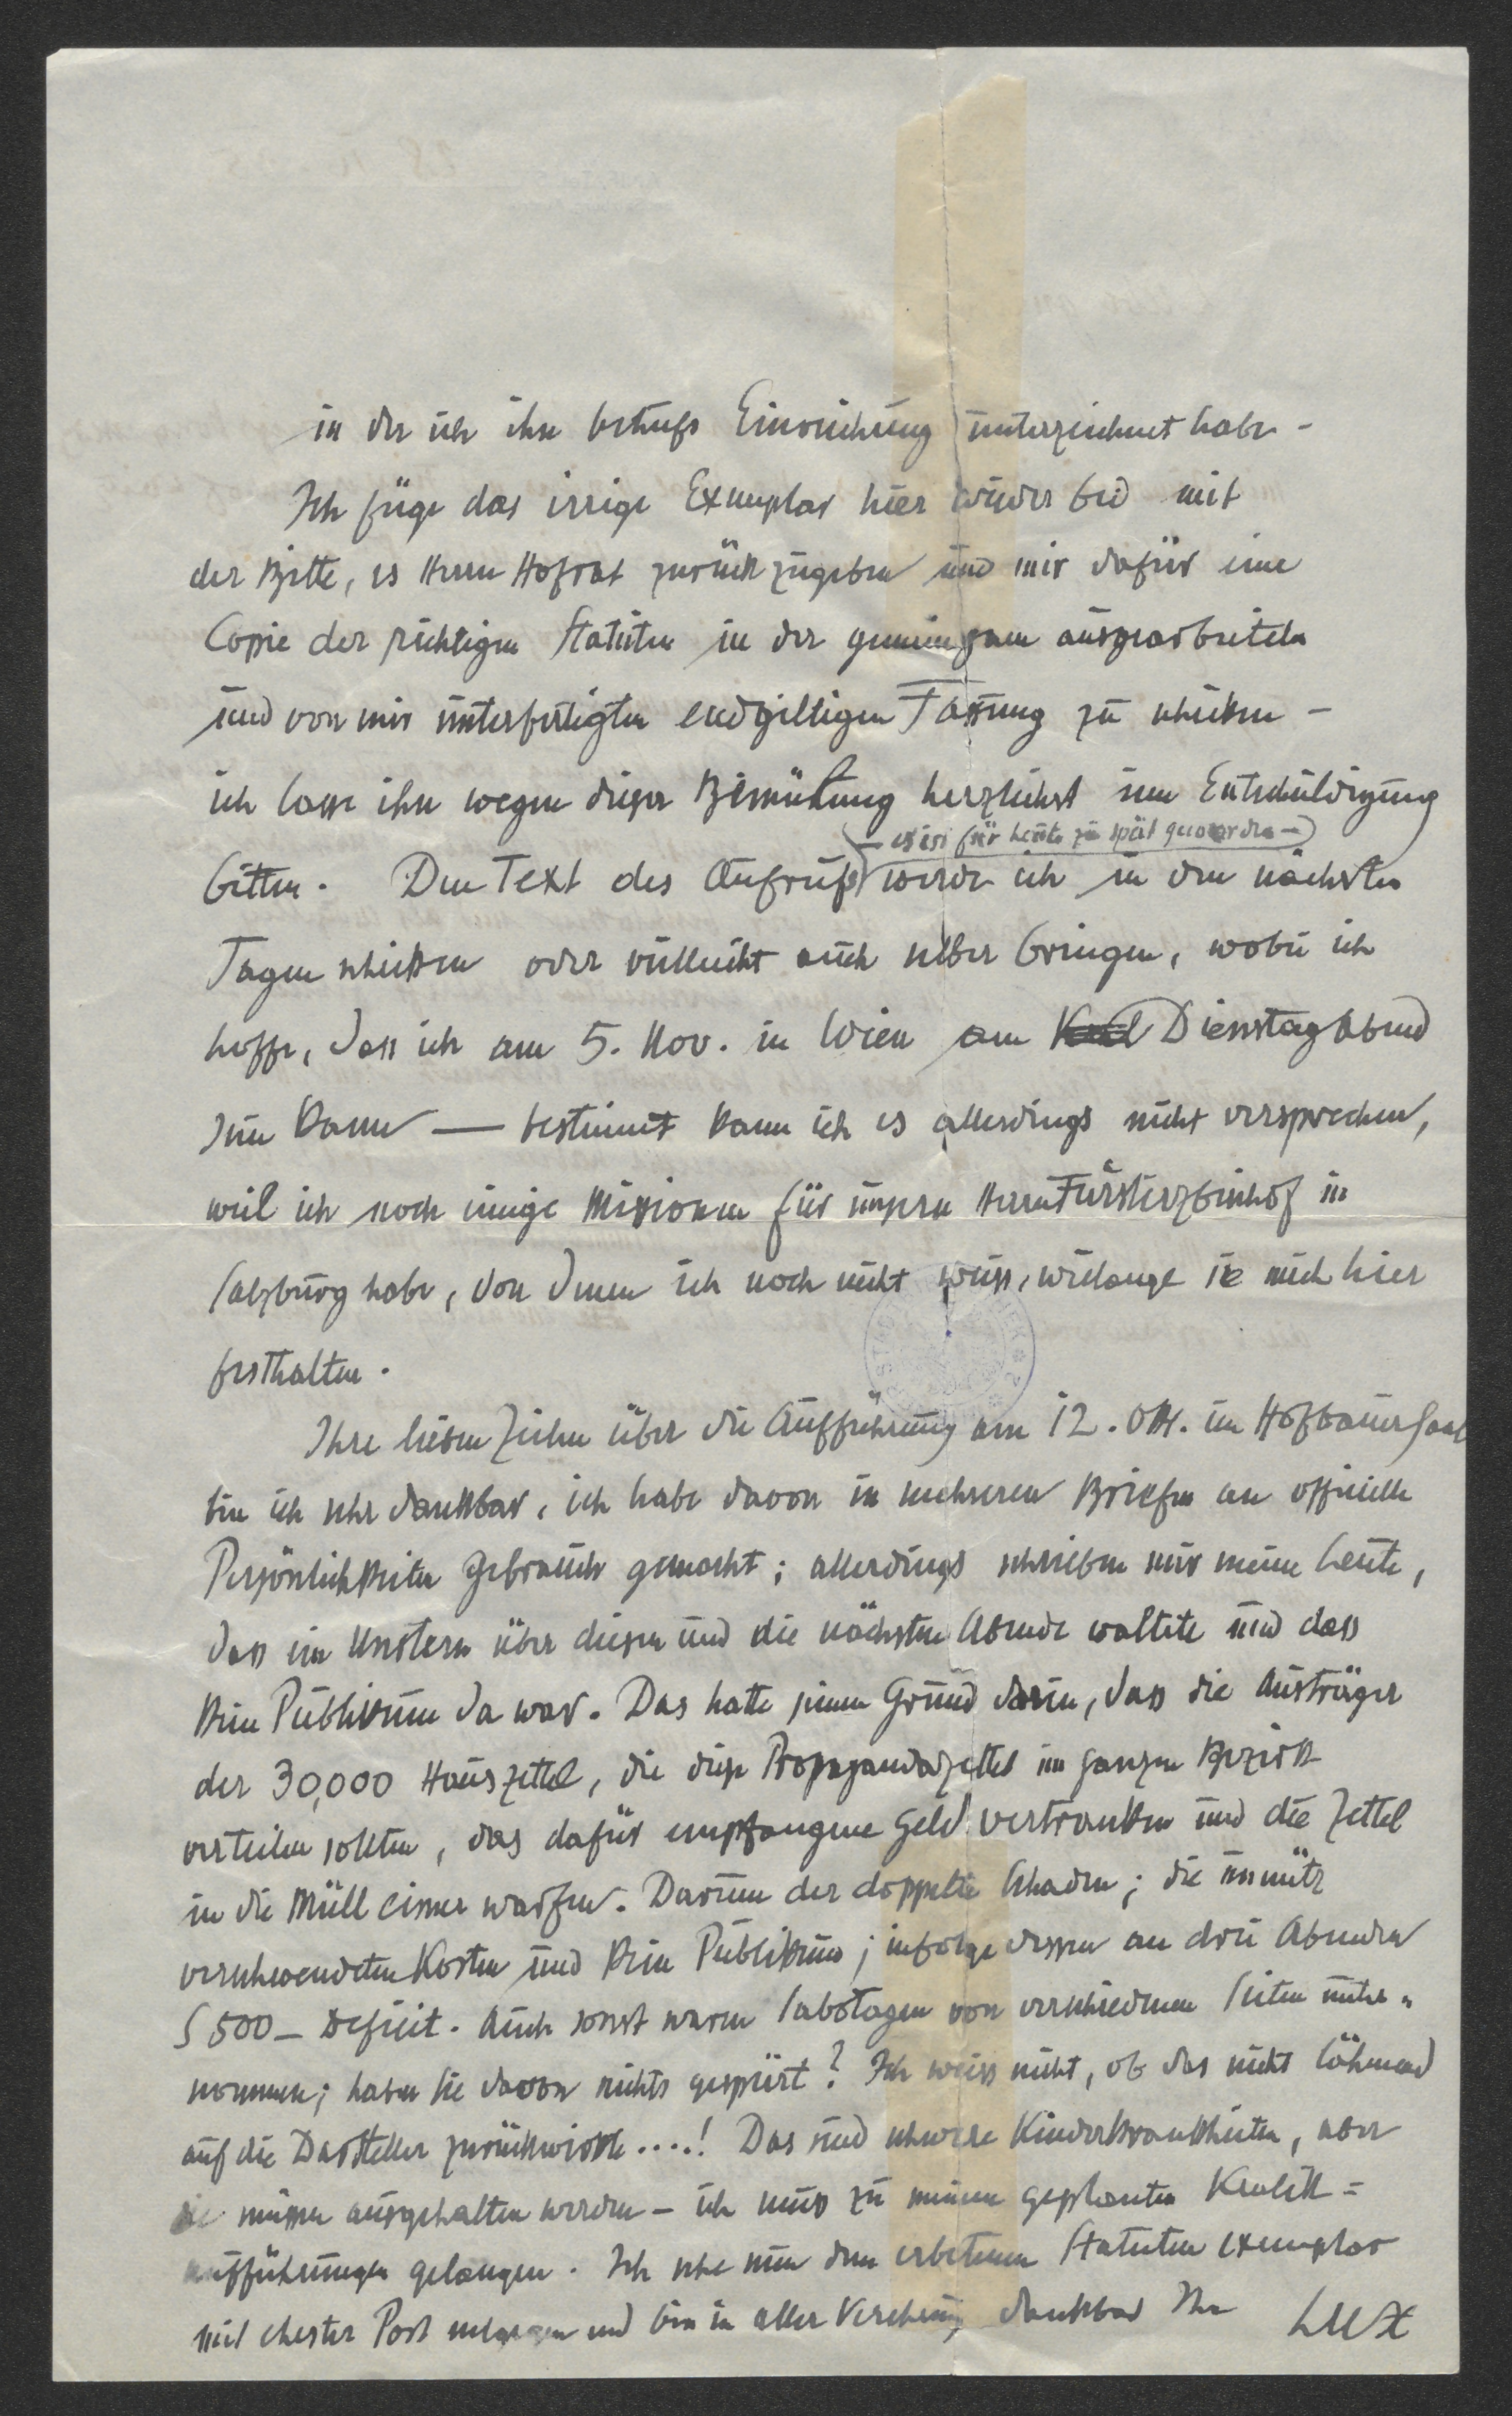 in der ich ihn behufs Einreichung unterzeichnet habe -
Ich füge das irrige Exemplar hier wieder bei mit
der Bitte, es Herrn Hofrat zurückzugeben und mir dafür eine
Copie der richtigen Statuten in der gemeinsam ausgearbeiteten
und von mir unterfertigten endgiltigen Fassung zu schicken -
ich lasse ihn wegen dieser Bemühung herzlichst um Entschuldigung
- es ist für heute zu spät geworden -
bitten. Den Text des Aufrufs werde ich in den nächsten
Tagen schicken oder vielleicht auch selber bringen, wobei ich
hoffe, dass ich am 5. Nov. in Wien am Dienstag Abend
sein kann — bestimmt kann ich es allerdings nicht versprechen,
weil ich noch einige Missionen für unsern Herrn Fürsterzbischof in
Salzburg habe, von denen ich noch nicht weiss, wielange sie mich hier
festhalten.
Ihre lieben Zeilen über die Aufführung am 12. Okt. im Hofbauersaal
bin ich sehr dankbar, ich habe davon in mehreren Briefen an officielle
Persönlichkeiten Gebrauch gemacht; allerdings schrieben mir meine Leute,
dass ein Unstern über diesen und die nächsten Abende waltete und dass
kein Publikum da war. Das hatte seinen Grund darin, dass die Austräger
der 30,000 Hauszettel, die diese Propagandazettel im ganzen Bezirk
verteilen sollten, das dafür empfangene Geld vertranken und die Zettel
in die Mülleimer warfen. Darum der doppelte Schaden; die unnütz
verschwendeten Kosten und kein Publikum; infolge dessen an drei Abenden
S 500 - Defizit. Auch sonst waren Sabotagen von verschiedenen Seiten unter-
nommen; haben Sie davon nichts gespürt? Ich weiss nicht, ob das nicht lähmend
auf die Darsteller zurückwirkte ....! Das sind schwere Kinderkrankheiten, aber
sie müssen ausgehalten werden - ich muss zu meinen geplanten Kralik=
aufführungen gelangen. Ich sehe nun dem erbetenen Statuten exemplar
mit ehester Post entgegen und bin in aller Verehrung dankbar Ihr Lux